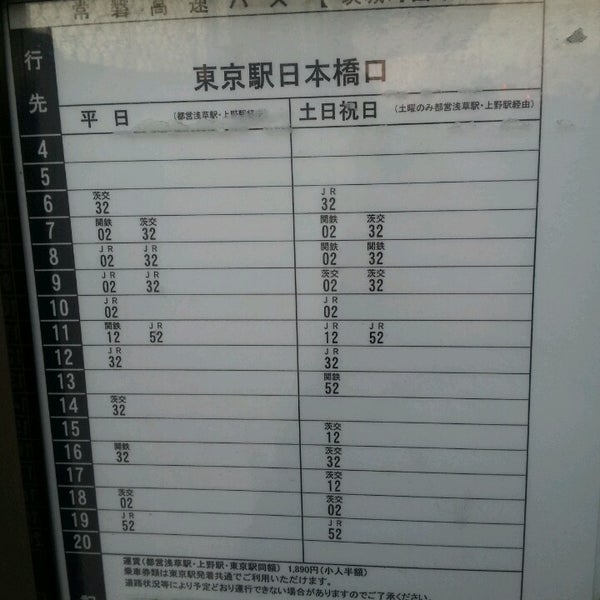 常磐高速バス
行先
東京駅日本橋口
平日
土日祝日 (土曜のみ都営浅草駅・上野駅経由)
4
5
6 茨交 JR
32 32
7 関鉄 茨交 関鉄 茨交
02 32 02 32
8 JR JR 関鉄 関鉄
02 32 02 32
9 JR JR 茨交 茨交
02 32 02 32
10 JR JR
02 02
11 関鉄 JR JR JR
12 52 12 52
12 JR JR
32 32
13 関鉄
52
14 茨交
32
15 茨交
12
16 関鉄 茨交
32 32
17 茨交
12
18 茨交 茨交
02 02
19 JR JR
52 52
20
運賃(都営浅草駅・上野駅・東京駅同額) 1,890円(小人半額)
乗車券類は東京駅発着共通でご利用いただけます。
道路状況等により予定どおり運行できない場合がありますのでご了承ください。